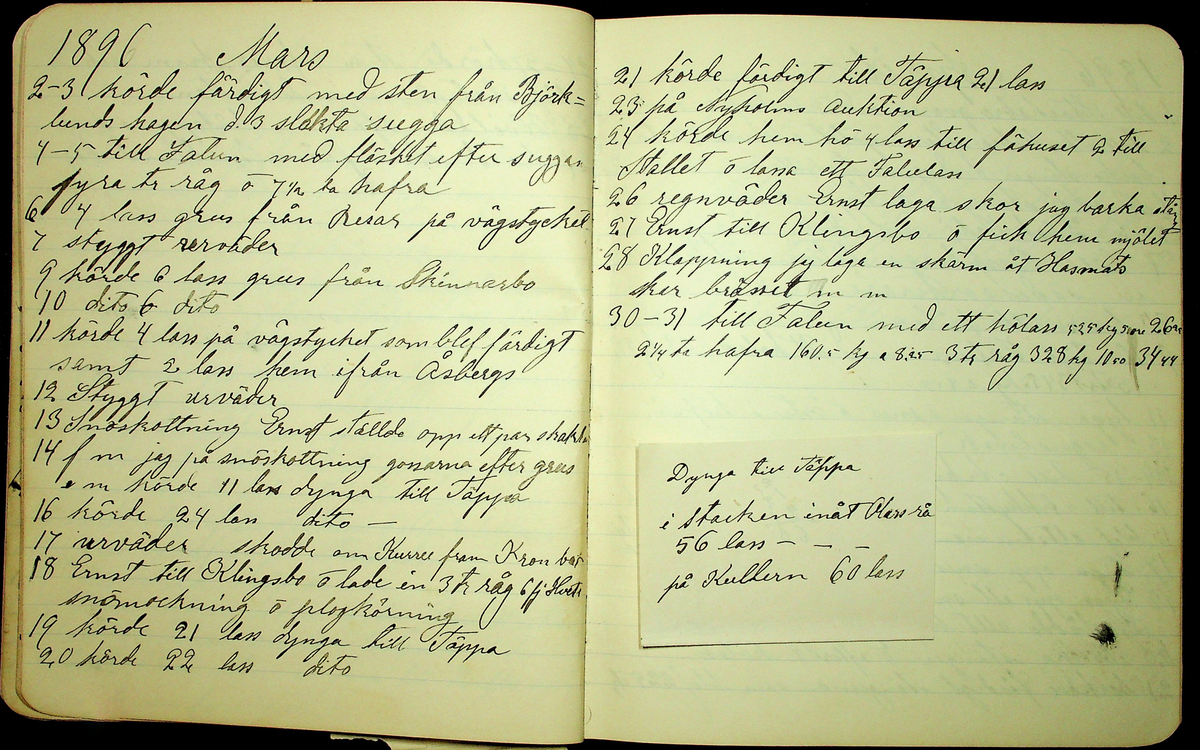 1896 Mars
2-3 körde färdigt med sten från Björk=
lunds hagen d. 3 slakta sugga
4-5 till Falun med fläsket efter suggan
fyra tr råg o 7½ ta hafra
6 4 lass grus från Resar på vägstycket
7 styggt urväder
9 körde 6 lass grus från Skinnarbo
10 dito 6 dito
11 körde 4 lass på vägstycket som blef färdigt
samt 2 lass hem ifrån Åsbergs
12 Styggt urväder
13 Snöskottning Ernst ställde opp ett par
14 f m jag på snöskottning gossarna efter grus
e m körde 11 lass dynga till Täppa
16 körde 24 lass dito —
17 urväder skodde om Kurre fram
18 Ernst till Klingsbo o lade in 3 tr råg 6 fj
snömockning o plogkörning
19 körde 21 lass dynga till Täppa
20 körde 22 lass dito
21 körde färdigt till Täppa 21 lass
23 på Nyholms auktion
24 körde hem hö 4 lass till fähuset 2 till
Stallet o lassa ett Falulass
26 regnväder Ernst laga skor jag barka
27 Ernst till Klingsbo o fick hem mjölet
28 Klappning jag laga en skärm åt Hasmats
sker brösset m m
30-31 till Falun med ett hölass 525 kg 5 öre 26
2¼ ta hafra 160.5 kg a 8.25 3 tr råg 328 kg 10 50 34 44
Dynga till Täppa
i stacken inåt Klassrå
56 lass - — -
på Kullern 60 lass